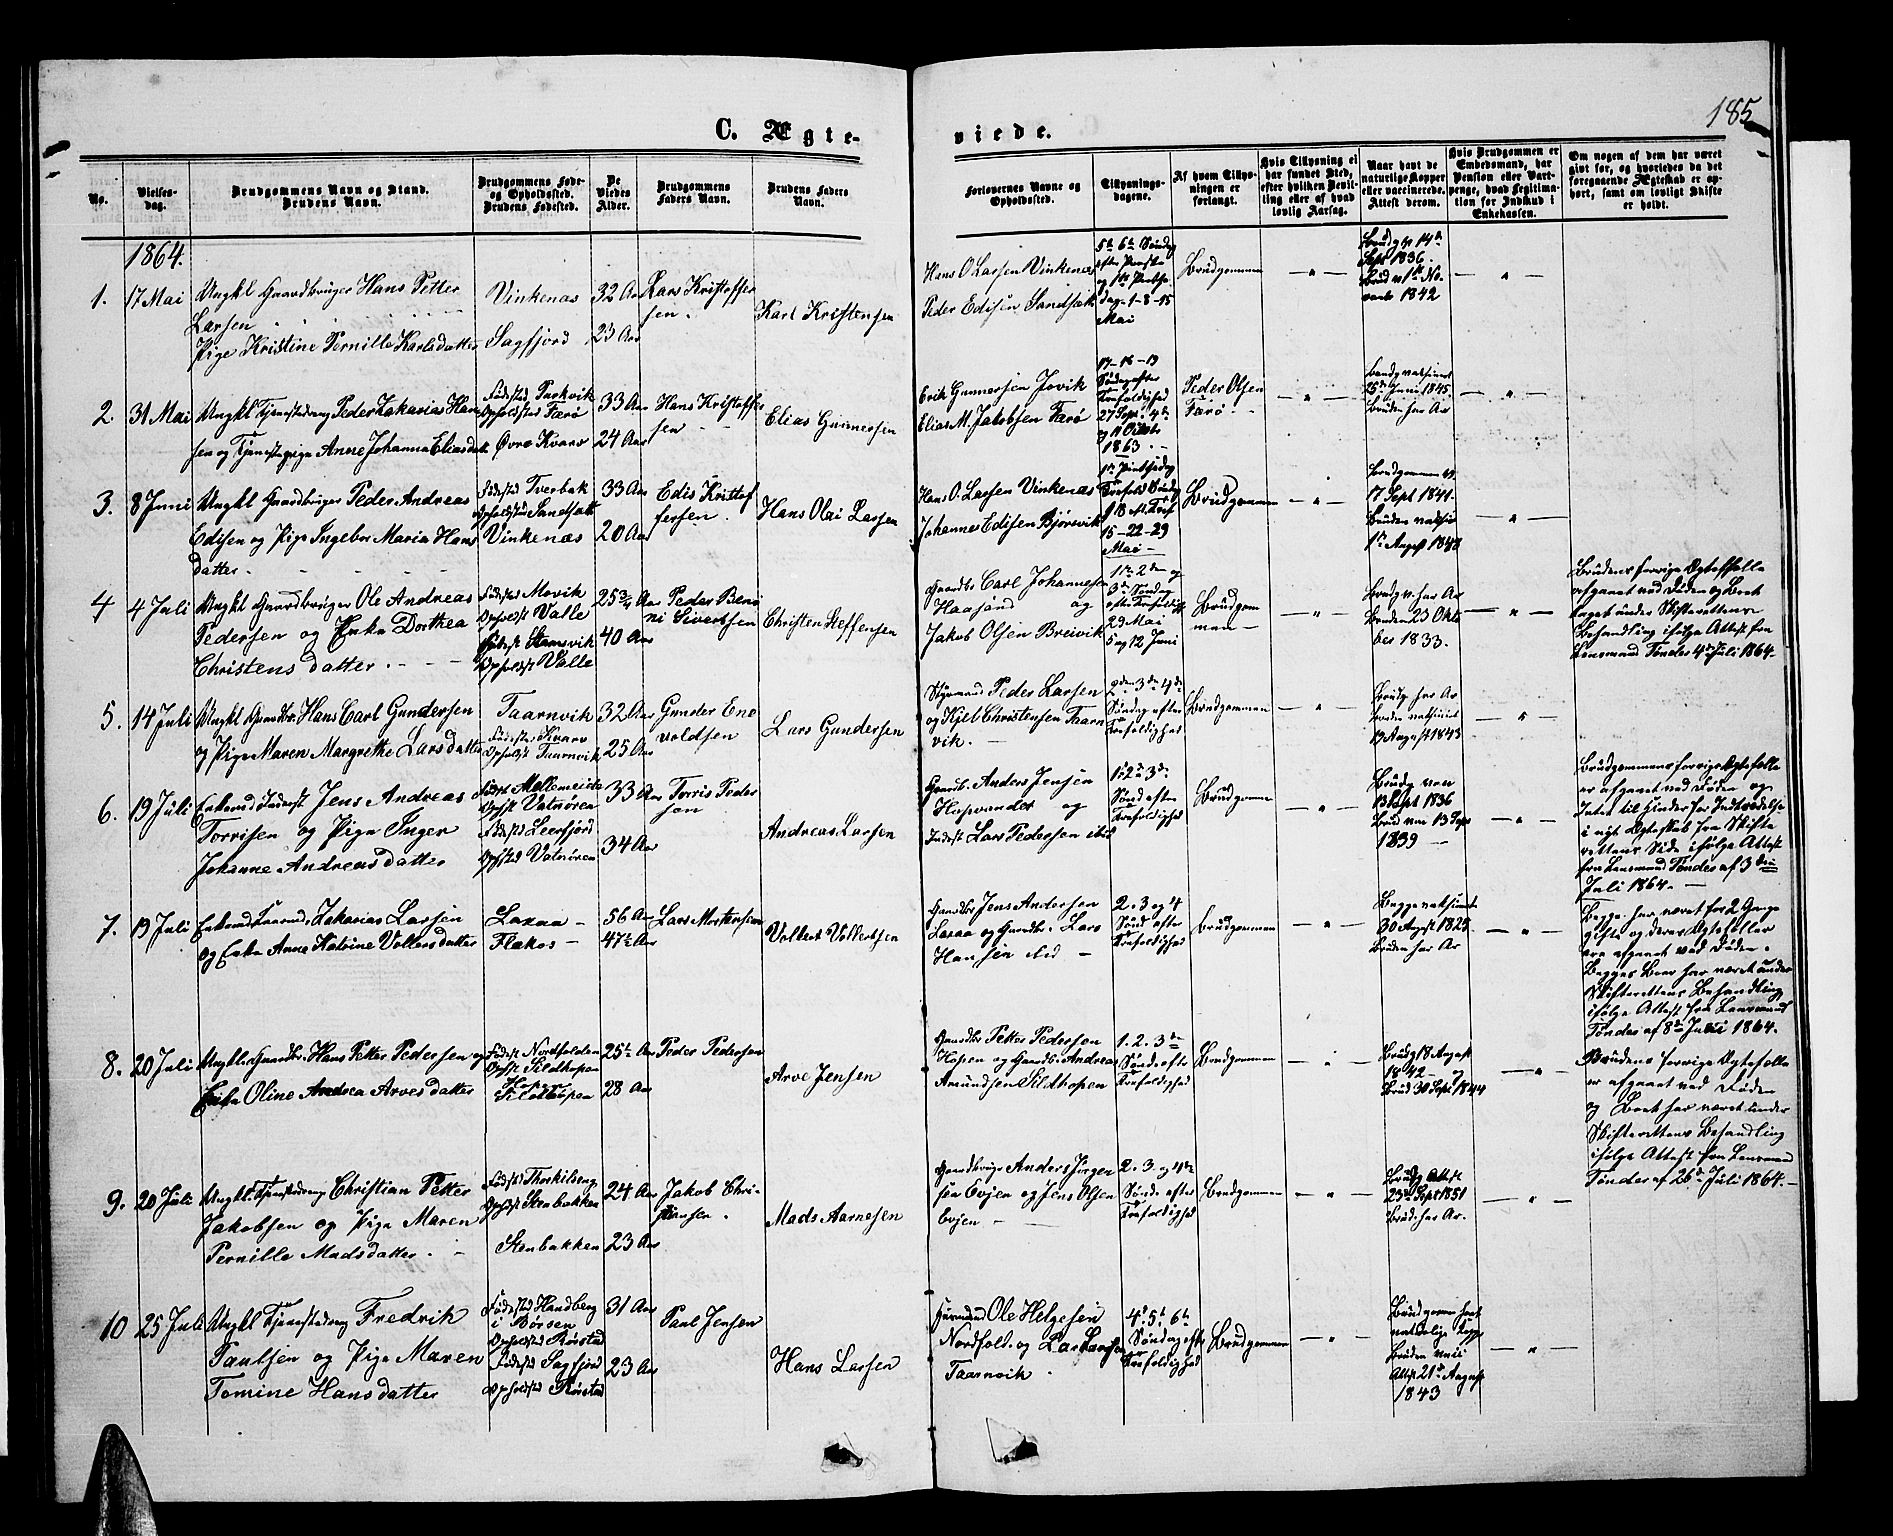 185
C. Ægte-
viede.
No.
Vielses-
dag.
Brudgommens Navn og Stand.
Brudens Navn.
Brudgommens Føde-
og Opholdssted.
Brudens Fødested.
De
Viedes
Alder.
Brudgommens
Faders Navn.
Brudens Faders
Navn.
Forlovernes Navne og
Opholdssted.
Tillysnings-
dagene.
Af hvem Tillys-
ningen er
forlangt.
Hvis Tillysning ei
har fundet Sted,
efter hvilken Bevil-
ling eller af hvad
lovlig Aarsag.
Naar havt de
naturlige Kopper
eller vaccinerede.
Attest derom.
Hvis Brudgommen er
Embedsmand, har
Pension eller Vart-
penge, hvad Legitima-
tion for Indskud i
Enkekassen.
Om nogen af dem har været
gift før, og hvorledes da det
foregaaende Ægteskab er op-
hørt, samt om lovligt Skifte
er holdt.
1864.
1.
17 Mai
Ungkl Gaardbruger Hans Petter
Larsen
Pige Kristine Pernille Karlsdatter
Vinkenæs
Sagfjord
32 Aar
23 Aar
Lars Kristoffer
sen.
Karl Kristensen
Hans O. Larsen Vinkenæs
Peder Edisen Sandsæk
5te 6te Søndag
efter Paaske
og 1ste Pintse
dag 1-8-15
Mai
Brudgommen
- " -
Brudg v 14de
Sept 1836.
Brud v 1ste No-
vembr 1842
- " -
2.
31 Mai
Ungkl Tjenestedreng Peder Zakarias Han
sen og Tjenestepige Anne Johanna Eliasdatt
Fødested Parkvik
Opholdssted Færø
Øvre Kvarv
33 Aar
24 Aar
Hans Kristoffer
sen
Elias Gunnersen
Erik Gunnersen Jovik
Elias M. Jakobsen Færø
17-18-19
Søndag efter
Trefoldighed
27 Sept. 4de
og 11 Octobr
1863.
Peder Olsen
Færø
- " -
Brudg vaksineret
25de Juni 1845.
Bruden har Ar
- " -
3.
8 Juni
Ungkl Gaardbruger Peder Andreas
Edisen og Pige Ingebor Maria Hans
datter.
Fødested Tverbak
Opholdssted Sandsæk
Vinkenæs
33 Aar
20 Aar
Edis Kristof
fersen.
Hans Olai Larsen
Hans O. Larsen Vinkenæs
Johannes Edisen Bjørsvik
1ste Pintsedag
Trefold Søndag
15-22-29
Mai -
Brudgommen
- " -
Brudgommen v
17 Sept 1841.
Bruden vaksin
1ste August 1848
- " -
4
4 Juli
Ungkl Gaardbruger Ole Andreas
Pedersen og Enke Dorthea
Christens datter.
Fødested Movik
Opholdst Valle
Fødest Stamsvik
Opholdst Valle
25 3/4 Aar
40 Aar
Peder Beni
ni Sivertsen
Christen Steffensen
Gaardbr Carl Johannesen
Haasand og
Jakob Olsen Breivik
1ste 2den og
3die Søndag
efter Trefoldigh
29 Mai
5 og 12 Juni
Brudgom
men -
- " -
Brudg. har Ar
Bruden 23 Okto
ber 1833.
- " -
Brudens forrige Ægtefælle
afgaaet ved Døden og Boet
taget under Skifterettens
Behandling ifølge Attest fra
Lensmand Tøndes 4de Juli 1864.
5.
14 Juli
Ungkl Gaardbr. Hans Carl Gundersen
og Pige Maren Margrethe Larsdatter
Taarnvik
Fødested Kvarv
Opholdst Taarnvik
32 Aar
25 Aar
Gunder Ene
voldsen
Lars Gundersen
Styrmand Peder Larsen
og Kjel Christensen Taarn
vik. -
2den 3die 4de
Søndag efter
Trefoldighed
Brudgommen
- " -
Brudg har Ar
Bruden vaksineret
19 August 1843
- " -
6.
19 Juli
Enkemd Inderst Jens Andreas
Torrisen og Pige Inger
Johanne Andreasdatter
Fødest Mollemeide
Ophst Vatnøren
Fødested Leerfjord
Ophsted Vatnøren
33 Aar
34 Aar
Torris Peder
sen
Andreas Larsen
Gaardbr. Anders Jensen
Hopvandet og
Inderst Lars Pedersen ibid
1ste 2den 3die
Sønd efter
Trefoldighed
Brudgommen
- " -
Brudg vac
13 Sept 1836
Brud vac 13 Sept
1839 -
- " -
Brudgommens forrige Ægtefælle
er afgaaet ved Døden og
Intet til Hinder for Indtrædelse
i nyt Ægteskab fra Skifte
rettens Side ifølge Attest
fra Lensmand Tøndes af 3die
Juli 1864. -
7.
19 Juli
Enkemd Gaardmd. Zakarias Larsen
og Enke Anne Katrine Vollersdatter
Laxaa -
Flakos -
56 Aar
47½ Aar
Lars Mortensen
Volkert Volkertsen
Gaardbr Jens Andersen
Laxaa og Gaardbr. Lars
Hansen ibid -
2. 3 og 4
Sønd efter
Trefoldighed
Brudgommen
- " -
Begge vaksineret
30 August 1825.
Bruden har Ar
- " -
Begge har været for 2 Gange
gifte og deres Ægtefæller
ere afgaaet ved Døden.
Begges Boer har været under
Skifterettens Behandling
ifølge Attest fra Lensmand
Tøndes af 8de Juli 1864.
8.
20 Juli
Ungkl. Gaardbr. Hans Petter Pedersen og
Enke Oline Andrea Arvesdatter
Fødest Nordfolden
Ophst Sildhopen
Hopen
Sildhopen
25½ Aar
28 Aar
Peder Pedersen
Arve Jensen
Gaardbr Petter Pedersen
Hopen og Gaardbr. Andreas
Amundsen Sildhopen
1. 2. 3die
Sønd efter
Trefoldighed
Brudgommen
- " -
Brudg 18 August
1842 - og
Brud 30 Sept 1844
- " -
Brudens forrige Ægtefælle
er afgaaet ved Døden
og Boet har været under
Skifterettens Behandling
ifølge Attest fra Lensmand
Tøndes af 26de Juli 1864. -
9.
20 Juli
Ungkl Tjenestedreng Christian Petter
Jakobsen og Pige Maren
Pernille Madsdatter.
Fødest Thorkilseng
Ophst Stenbakken
Stenbakken
24 Aar
23 Aar
Jakob Chri-
stensen.
Mads Aarnesen
Gaardbruger Anders Jørgen
sen Evjen og Jens Olsen
Evjen -
2. 3. og 4de
Sønd efter
Trefoldighed
Brudgommen
- " -
Brudg Attst
23de Sept 1851
Brud har Ar.
- " -
10
25 Juli
Ungkl Tjenestedreng Fredrik
Paulsen og Pige Maren
Tomine Hansdatter
Fødested Handberg
i Børsen
Opholdsted Røsted
Fødested Sagfjord
Opholdsted Røsted
31 Aar
23 Aar
Paul Jensen
Hans Larsen
Ole Helgesen
Nordfold. og Lars Larsen
Taarnvik.
4de 5te 6te
Søndag efter
Trefoldighed
Brudgommen
- " -
Brudgom havt
naturlige Kopper
Bruden vacc
Attest 21de August
1843
- " -